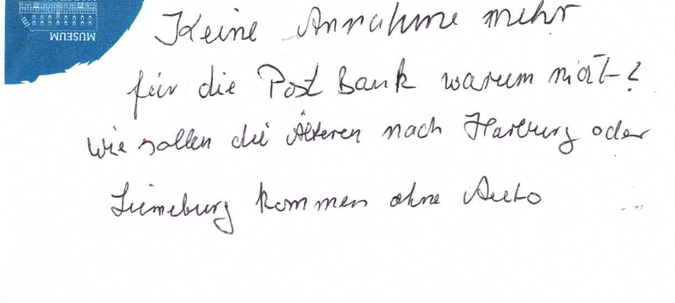 MUSEUM
Keine Annahme mehr
für die Post Bank warum nicht?
Wie sollen die Älteren nach Harburg oder
Lüneburg kommen ohne Auto